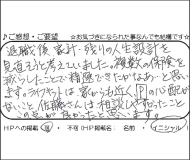 ♪ご感想・ご要望 ☆お気づきになられた事なんでも結構です☆
退職後家計・残りの人生設計を
見直そうと考えていました。複数の保険を
減らしたことで精理できたかなあーと思い
ます。ライフネットは家からも近くPの心配が
ないこと、佐藤さんは相談しやすかったこと
この点が良かったと思います。
HPへの掲載 可 ・ 不可(HP掲載者: 名前 ・ イニシャル)